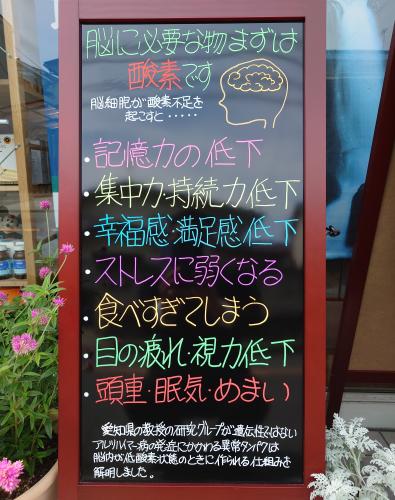 脳に必要な物まずは
酸素です
脳細胞が酸素不足を
起こすと・・・・・
・記憶力の低下
・集中力・持続力低下
・幸福感・満足感低下
・ストレスに弱くなる
・食べすぎてしまう
・目の疲れ・視力低下
・頭重・眠気・めまい
愛知県の教授の研究グループが遺伝性ではない
アルツハイマー病の発症にかかわる異常タンパクは
脳内が低酸素状態のときに作られる仕組みを
解明しました。